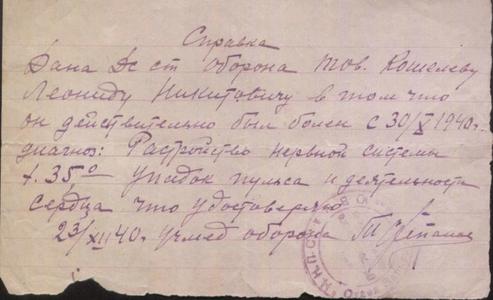 Справка
Дана Дс ст оборона тов. Кошелеву
Леониду Никитовичу в том что
он действительно был болен с 30/X 1940г.
диагноз: Растройство нервной системы
t. 35° упадок пульса и деятельности
сердца что удостоверяю
23/XII 40г. Учмед оборона